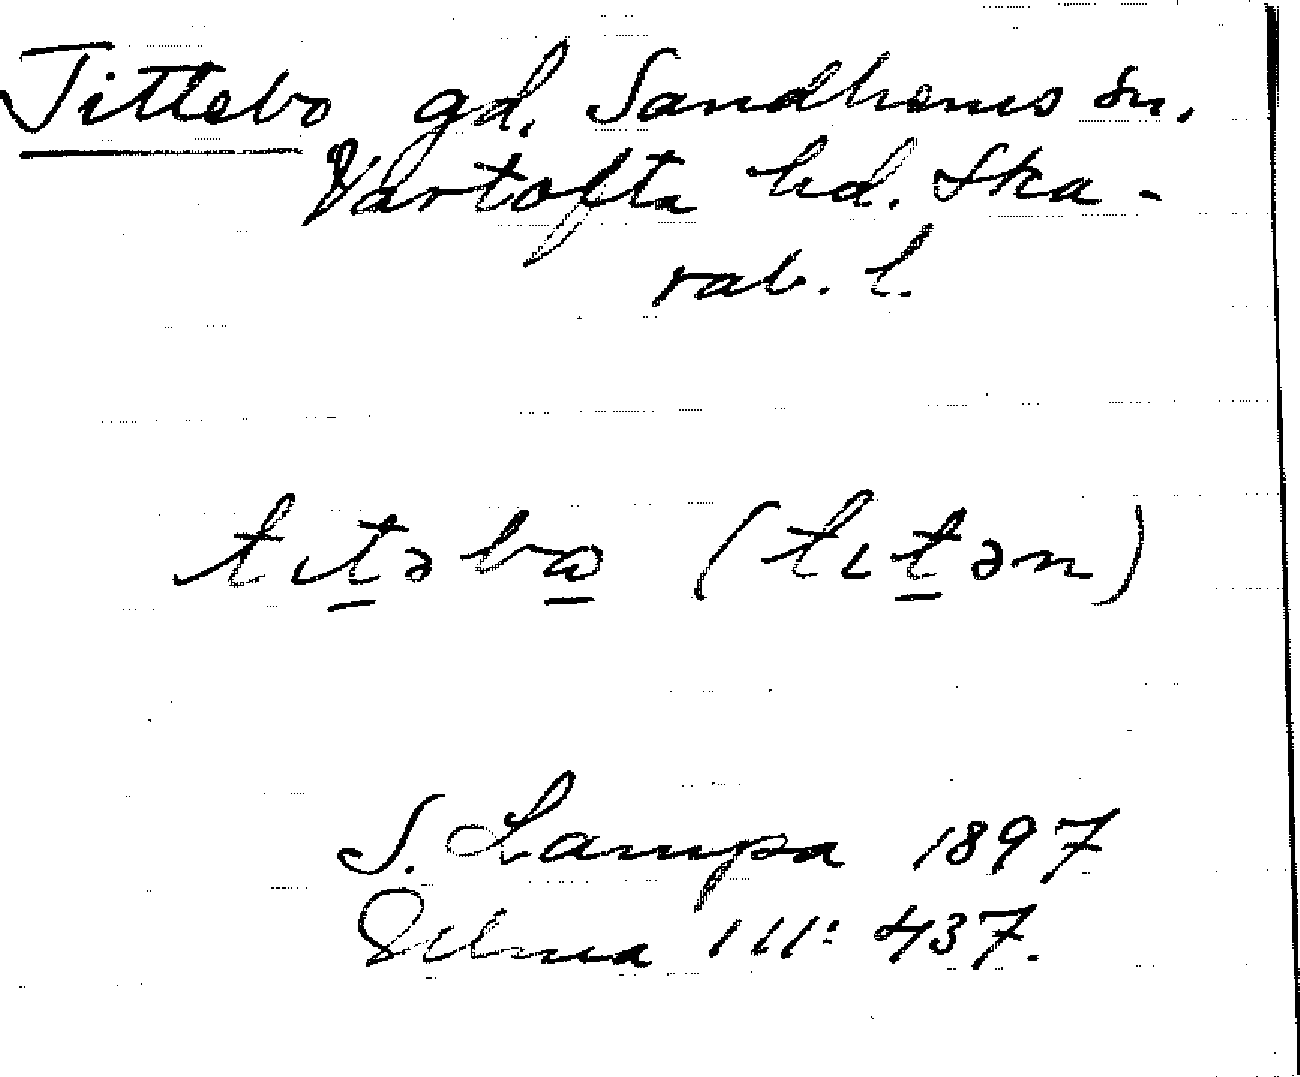 Tittebo gd. Sandhems sn.
Vartofta hd. Ska-
rab. l.
tıt̲əbω̲ (tıt̲ən)
S. Lampa 1897
III: 437.